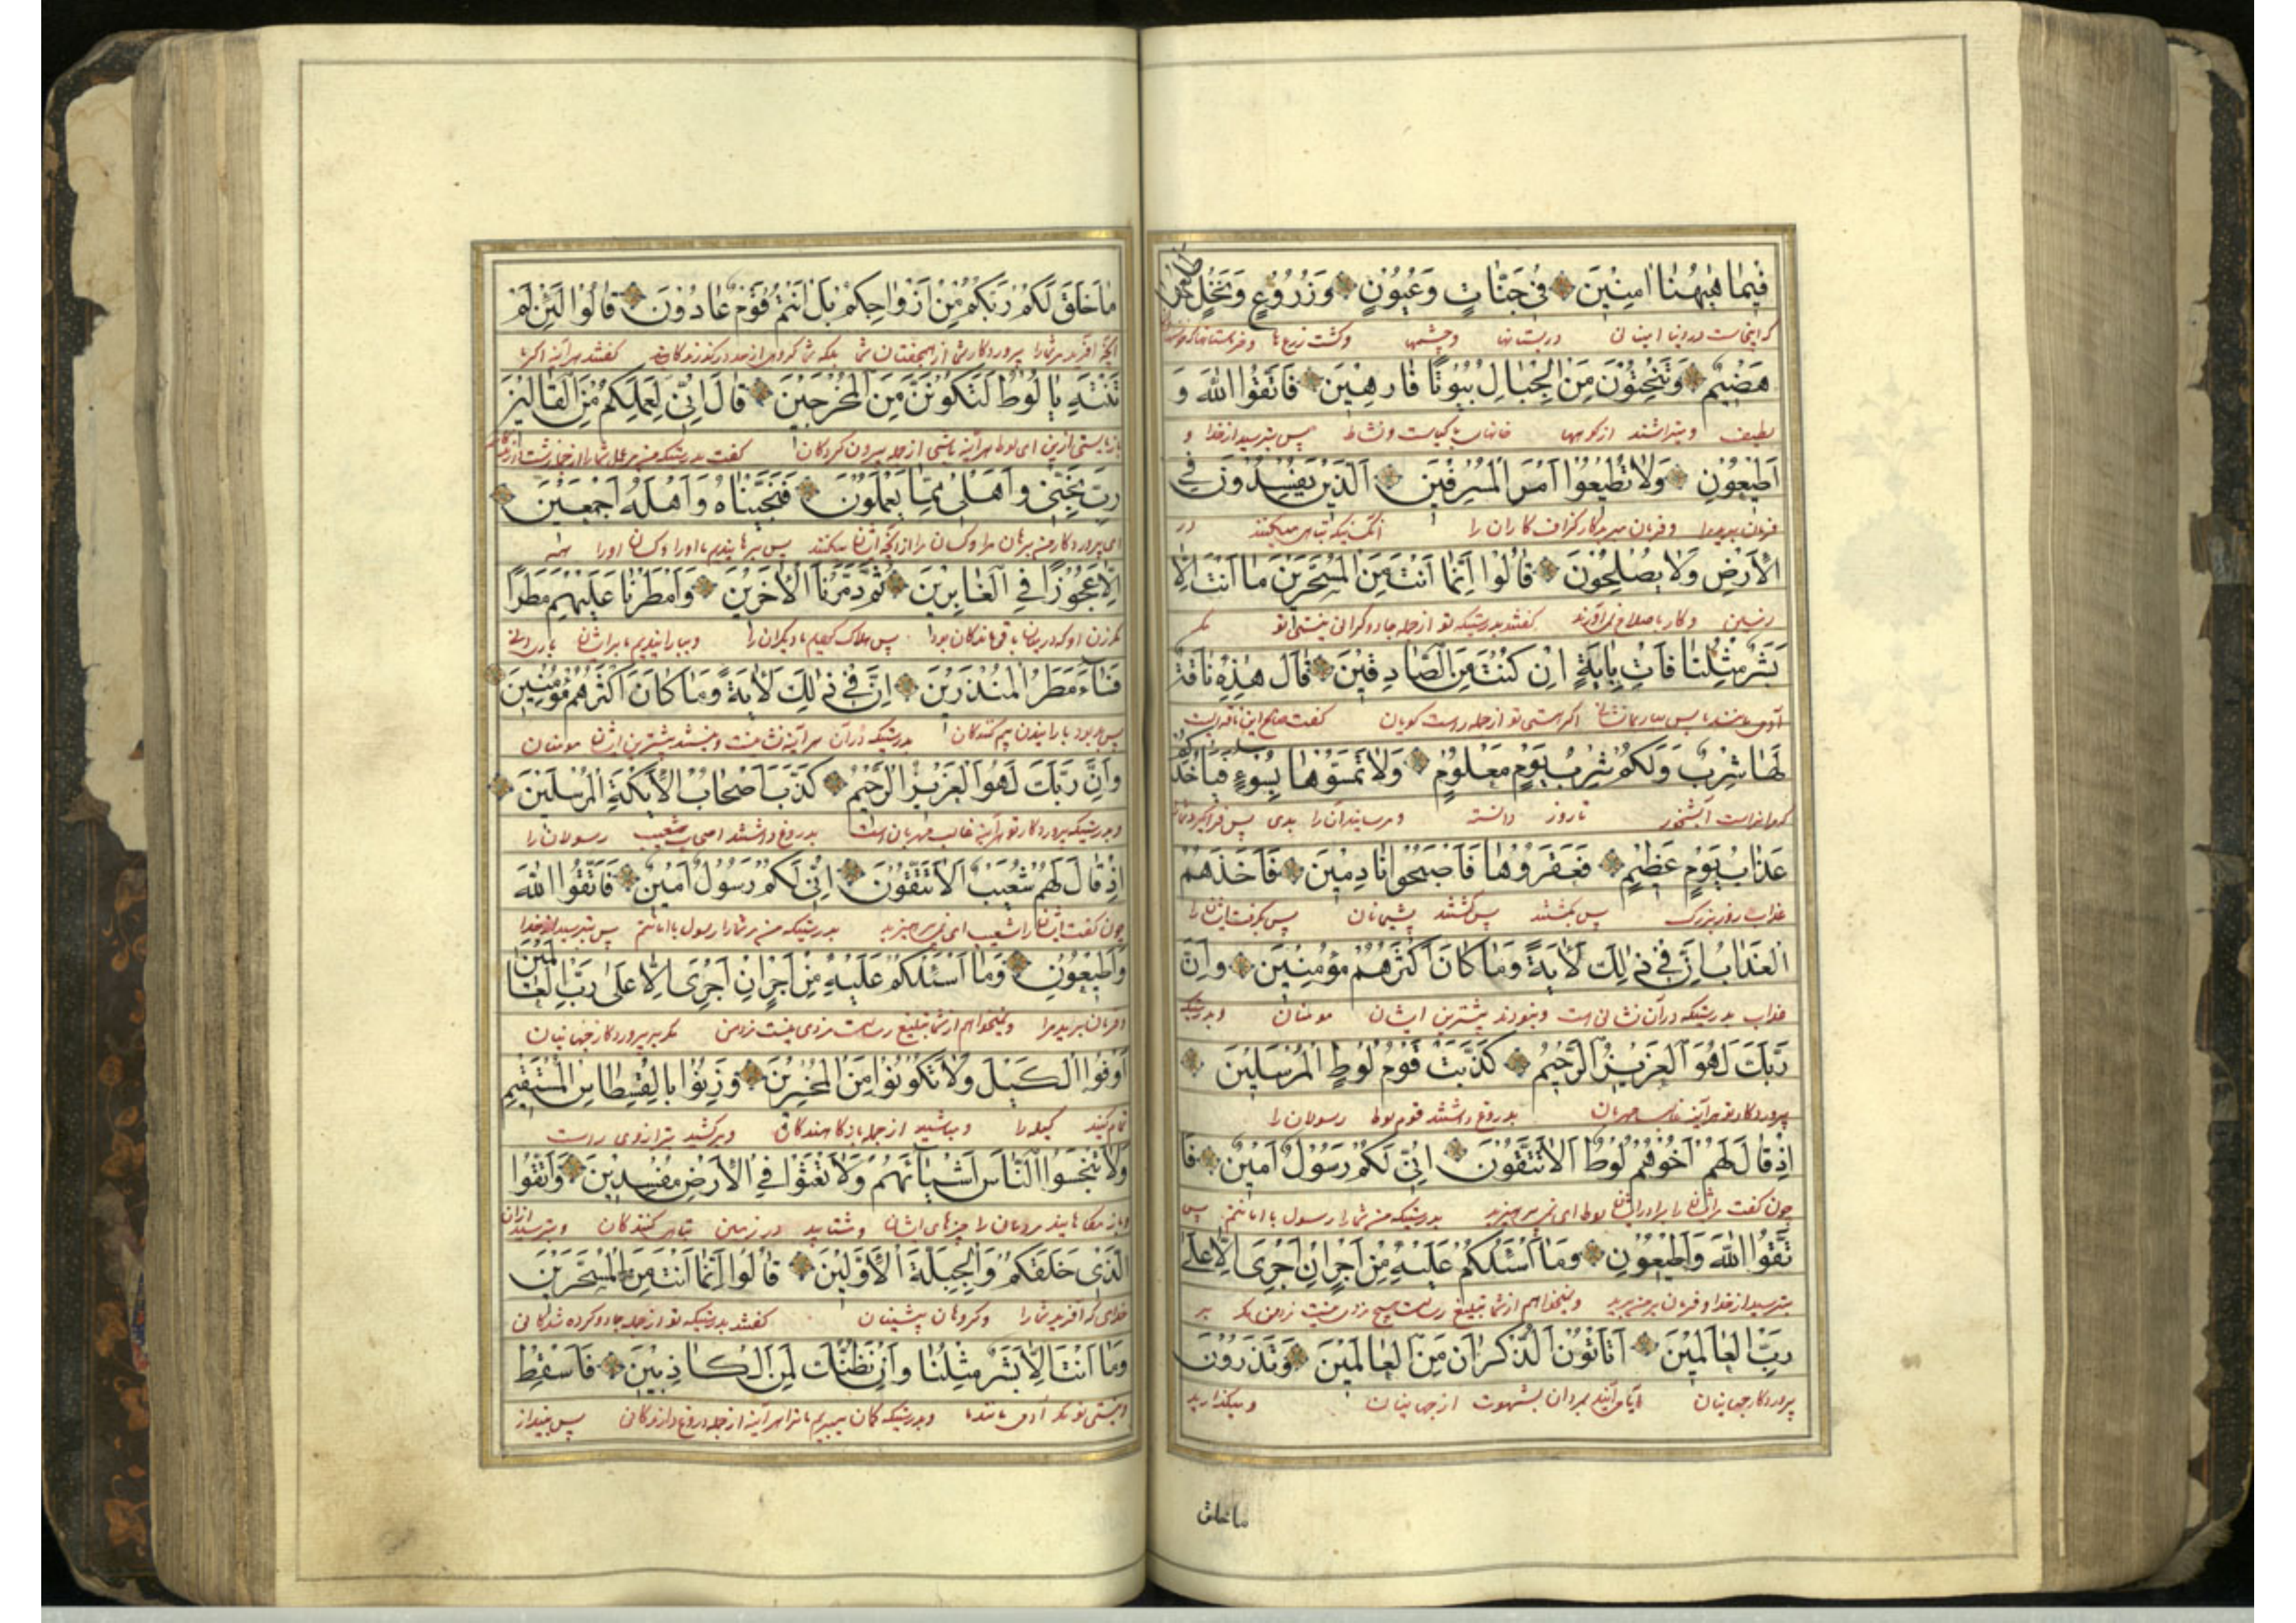 فِيمَا هٰيهُنَا اٰمِنِينَ فِي جَنَّاتٍ وَعُيُونٍ وَزُرُوعٍ وَنَخْلٍ طَلْعُهَا
که اینجاست در بستانها وچشمها وکشت زرعها
هَضِيمٌ وَتَنْحِتُونَ مِنَ الْجِبَالِ بُيُوتًا فَارِهِينَ فَاتَّقُوا اللّٰهَ وَ
لطیف ومیتراشند از کوهها خانهای پس بترسید از خدا و
اَطِيعُونِ وَلَا تُطِيعُوا اَمْرَ الْمُسْرِفِينَ اَلَّذِينَ يُفْسِدُونَ فِي
فرمان برید مرا وفرمان مبرید کار گزاف کاران را آنکسانیکه تباهی میکنند در
الْاَرْضِ وَلَا يُصْلِحُونَ قَالُوا اِنَّمَا اَنْتَ مِنَ الْمُسَحَّرِينَ مَا اَنْتَ اِلَّا
زمین وکار باصلاح نمی آورند گفتند بدرستیکه تو از جمله جادوکرانی نیستی تو مگر
بَشَرٌ مِثْلُنَا فَأْتِ بِاٰيَةٍ اِنْ كُنْتَ مِنَ الصَّادِقِينَ قَالَ هٰذِهِ نَاقَةٌ
آدمی مانند ما پس بیار نشانی اگر هستی تو از جمله راست گویان گفت صالح این ناقه ایست
لَهَا شِرْبٌ وَلَكُمْ شِرْبُ يَوْمٍ مَعْلُومٍ وَلَا تَمَسُّوهَا بِسُوءٍ فَيَأْخُذَكُمْ
آبشخور روز دانسته ومرسانید آنرا بدی پس فرا گیرد شما را
عَذَابُ يَوْمٍ عَظِيمٍ فَعَقَرُوهَا فَاَصْبَحُوا نَادِمِينَ فَاَخَذَهُمُ
عذاب روز بزرگ پس بکشتند پس گشتند پشیمانان پس بگرفت ایشان را
الْعَذَابُ اِنَّ فِي ذٰلِكَ لَاٰيَةً وَمَا كَانَ اَكْثَرُهُمْ مُؤْمِنِينَ وَاِنَّ
عذاب بدرستیکه در آن نشانی است ونبودند بیشترین ایشان مومنان وبدرستیکه
رَبَّكَ لَهُوَ الْعَزِيزُ الرَّحِيمُ كَذَّبَتْ قَوْمُ لُوطٍ الْمُرْسَلِينَ
پروردکار تو هر آینه غالب مهربان بدروغ داشتند قوم لوط رسولان را
اِذْ قَالَ لَهُمْ اَخُوهُمْ لُوطٌ اَلَا تَتَّقُونَ اِنِّي لَكُمْ رَسُولٌ اَمِينٌ فَا
چون گفت ایشان را برادر ایشان لوط ای نمی پرهیزید بدرستیکه من شما را رسول با امانتم پس
تَّقُوا اللّٰهَ وَاَطِيعُونِ وَمَا اَسْئَلُكُمْ عَلَيْهِ مِنْ اَجْرٍ اِنْ اَجْرِيَ اِلَّا عَلٰى
بترسید از خدا وفرمان برید ونمیخواهم از شما تبلیغ رسالت هیچ مزدی نیست مزد من مگر بر
رَبِّ الْعَالَمِينَ اَتَأْتُونَ الذُّكْرَانَ مِنَ الْعَالَمِينَ وَتَذَرُونَ
پروردکار جهانیان بمردان بشهوت از جهانیان ومیگذارید
ما خلق
مَا خَلَقَ لَكُمْ رَبُّكُمْ مِنْ اَزْوَاجِكُمْ بَلْ اَنْتُمْ قَوْمٌ عَادُونَ قَالُوا لَئِنْ لَمْ
آنچه آفرید شما را پروردکار شما از جفتان شما بلکه شما گروهی از حد درگذرندگانید گفتند هر آینه اگر
تَنْتَهِ يَا لُوطُ لَتَكُونَنَّ مِنَ الْمُخْرَجِينَ قَالَ اِنِّي لِعَمَلِكُمْ مِنَ الْقَالِينَ
باز نایستی ازین ای لوط هر آینه باشی از جمله بیرون کردکان گفت بدرستیکه من مر عمل شما را
رَبِّ نَجِّنِي وَاَهْلِي مِمَّا يَعْمَلُونَ فَنَجَّيْنَاهُ وَاَهْلَهُ اَجْمَعِينَ
ای پروردکار من برهان مرا وکسان مرا از آنچه ایشان میکنند پس برهانیدیم ما او را وکسان او را همه
اِلَّا عَجُوزًا فِي الْغَابِرِينَ ثُمَّ دَمَّرْنَا الْاٰخَرِينَ وَاَمْطَرْنَا عَلَيْهِمْ مَطَرًا
مگر زن او که باقی ماندکان بود پس هلاک کردیم ما دیکران را وبارانیدیم ما بر ایشان بارانی
فَسَاءَ مَطَرُ الْمُنْذَرِينَ اِنَّ فِي ذٰلِكَ لَاٰيَةً وَمَا كَانَ اَكْثَرُهُمْ مُؤْمِنِينَ
پس بد بود بارانیدن بیم کنندکان بدرستیکه در آن هر آینه نشانست ونیستند بیشترین ایشان مومنان
وَاِنَّ رَبَّكَ لَهُوَ الْعَزِيزُ الرَّحِيمُ كَذَّبَ اَصْحَابُ الْاَيْكَةِ الْمُرْسَلِينَ
وبدرستیکه پروردکار تو هر آینه غالب مهربان است بدروغ داشتند اصحاب شعیب رسولان را
اِذْ قَالَ لَهُمْ شُعَيْبٌ اَلَا تَتَّقُونَ اِنِّي لَكُمْ رَسُولٌ اَمِينٌ فَاتَّقُوا اللّٰهَ
چون گفت ایشان را شعیب ای نمی پرهیزید بدرستیکه من شما را رسول با امانتم پس بترسید از خدا
وَاَطِيعُونِ وَمَا اَسْئَلُكُمْ عَلَيْهِ مِنْ اَجْرٍ اِنْ اَجْرِيَ اِلَّا عَلٰى رَبِّ الْعَالَمِينَ
وفرمان برید مرا ونمیخواهم از شما تبلیغ رسالت مزدی نیست مزد من مگر بر پروردکار جهانیان
اَوْفُوا الْكَيْلَ وَلَا تَكُونُوا مِنَ الْمُخْسِرِينَ وَزِنُوا بِالْقِسْطَاسِ الْمُسْتَقِيمِ
تمام کنید کیل را ومباشید از جمله کاهندگان وبرکشید بترازوی راست
وَلَا تَبْخَسُوا النَّاسَ اَشْيَاءَهُمْ وَلَا تَعْثَوْا فِي الْاَرْضِ مُفْسِدِينَ وَاتَّقُوا
مردمان را چیزهای ایشان ومشتابید در زمین تباهی کنندکان وبترسید از آن
الَّذِي خَلَقَكُمْ وَالْجِبِلَّةَ الْاَوَّلِينَ قَالُوا اِنَّمَا اَنْتَ مِنَ الْمُسَحَّرِينَ
خدای که آفرید شما را وکروهان پیشینان گفتند بدرستیکه تو از جمله جادو کرده شدکانی
وَمَا اَنْتَ اِلَّا بَشَرٌ مِثْلُنَا وَاِنْ نَظُنُّكَ لَمِنَ الْكَاذِبِينَ فَاَسْقِطْ
ونیستی تو مگر آدمی مانند ما وبدرستیکه کمان میبریم ما ترا هر آینه از جمله دروغ پس بینداز